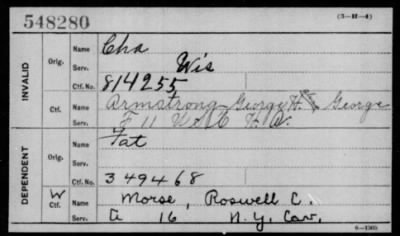 548280
(3-H-4)
INVALID
Orig.
Name Cha
Serv. Wis
Ctf. No. 814255
Ctf.
Name Armstrong George H. George
Serv. F 11 U.S.C. H. A.
DEPENDENT
Orig.
Name Pat
Serv.
Ctf. No. 349468
W
Ctf.
Name Morse, Roswell C.
Serv. A 16 N.Y. Cav.